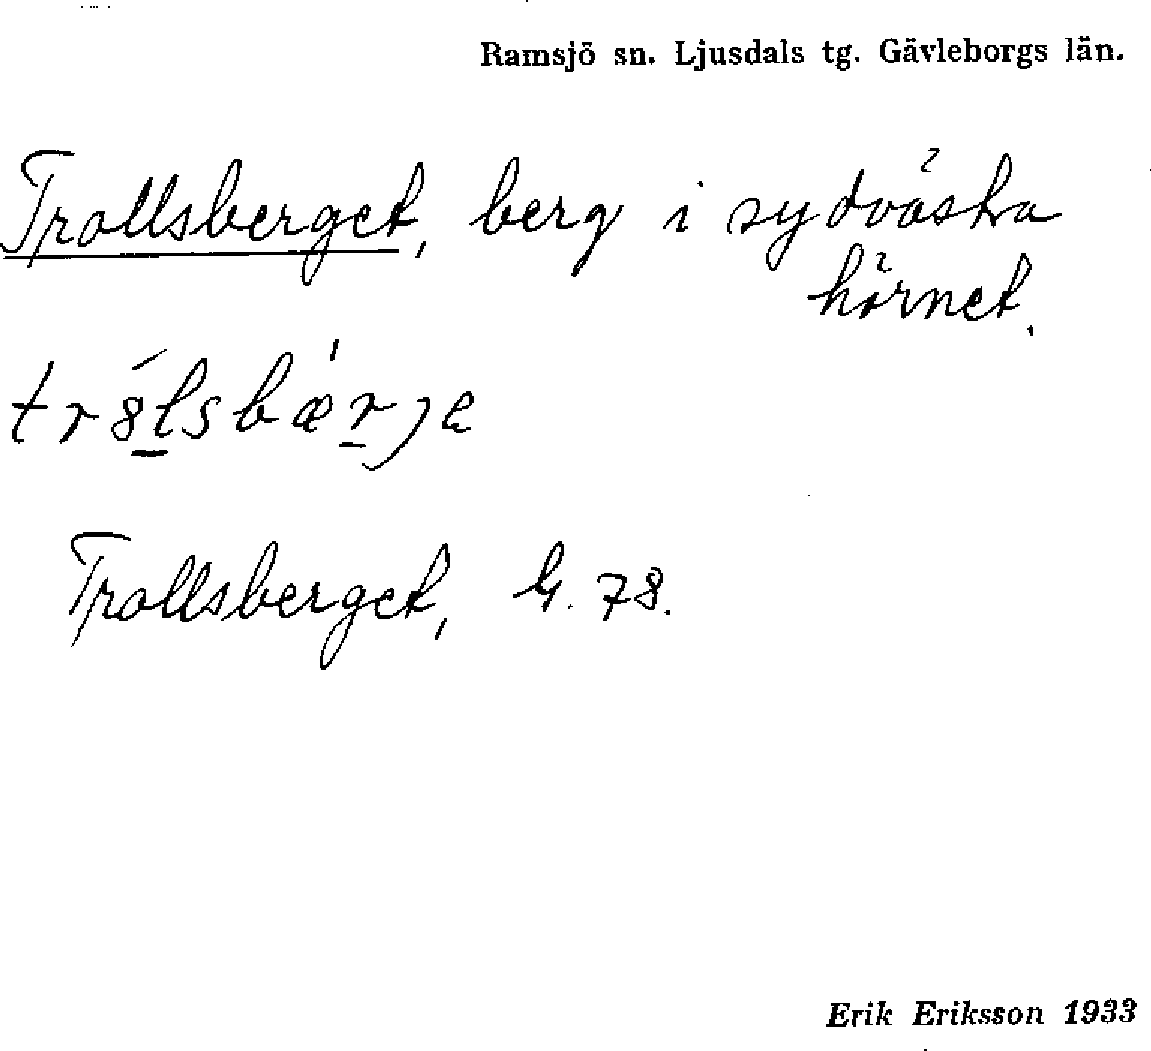 Ramsjö sn. Ljusdals tg. Gävleborgs län.
Trollsberget, berg i sydvästra
hörnet.
tr8́l̲sbæ̍r̲je
Trollsberget, G. 78.
Erik Eriksson 1933